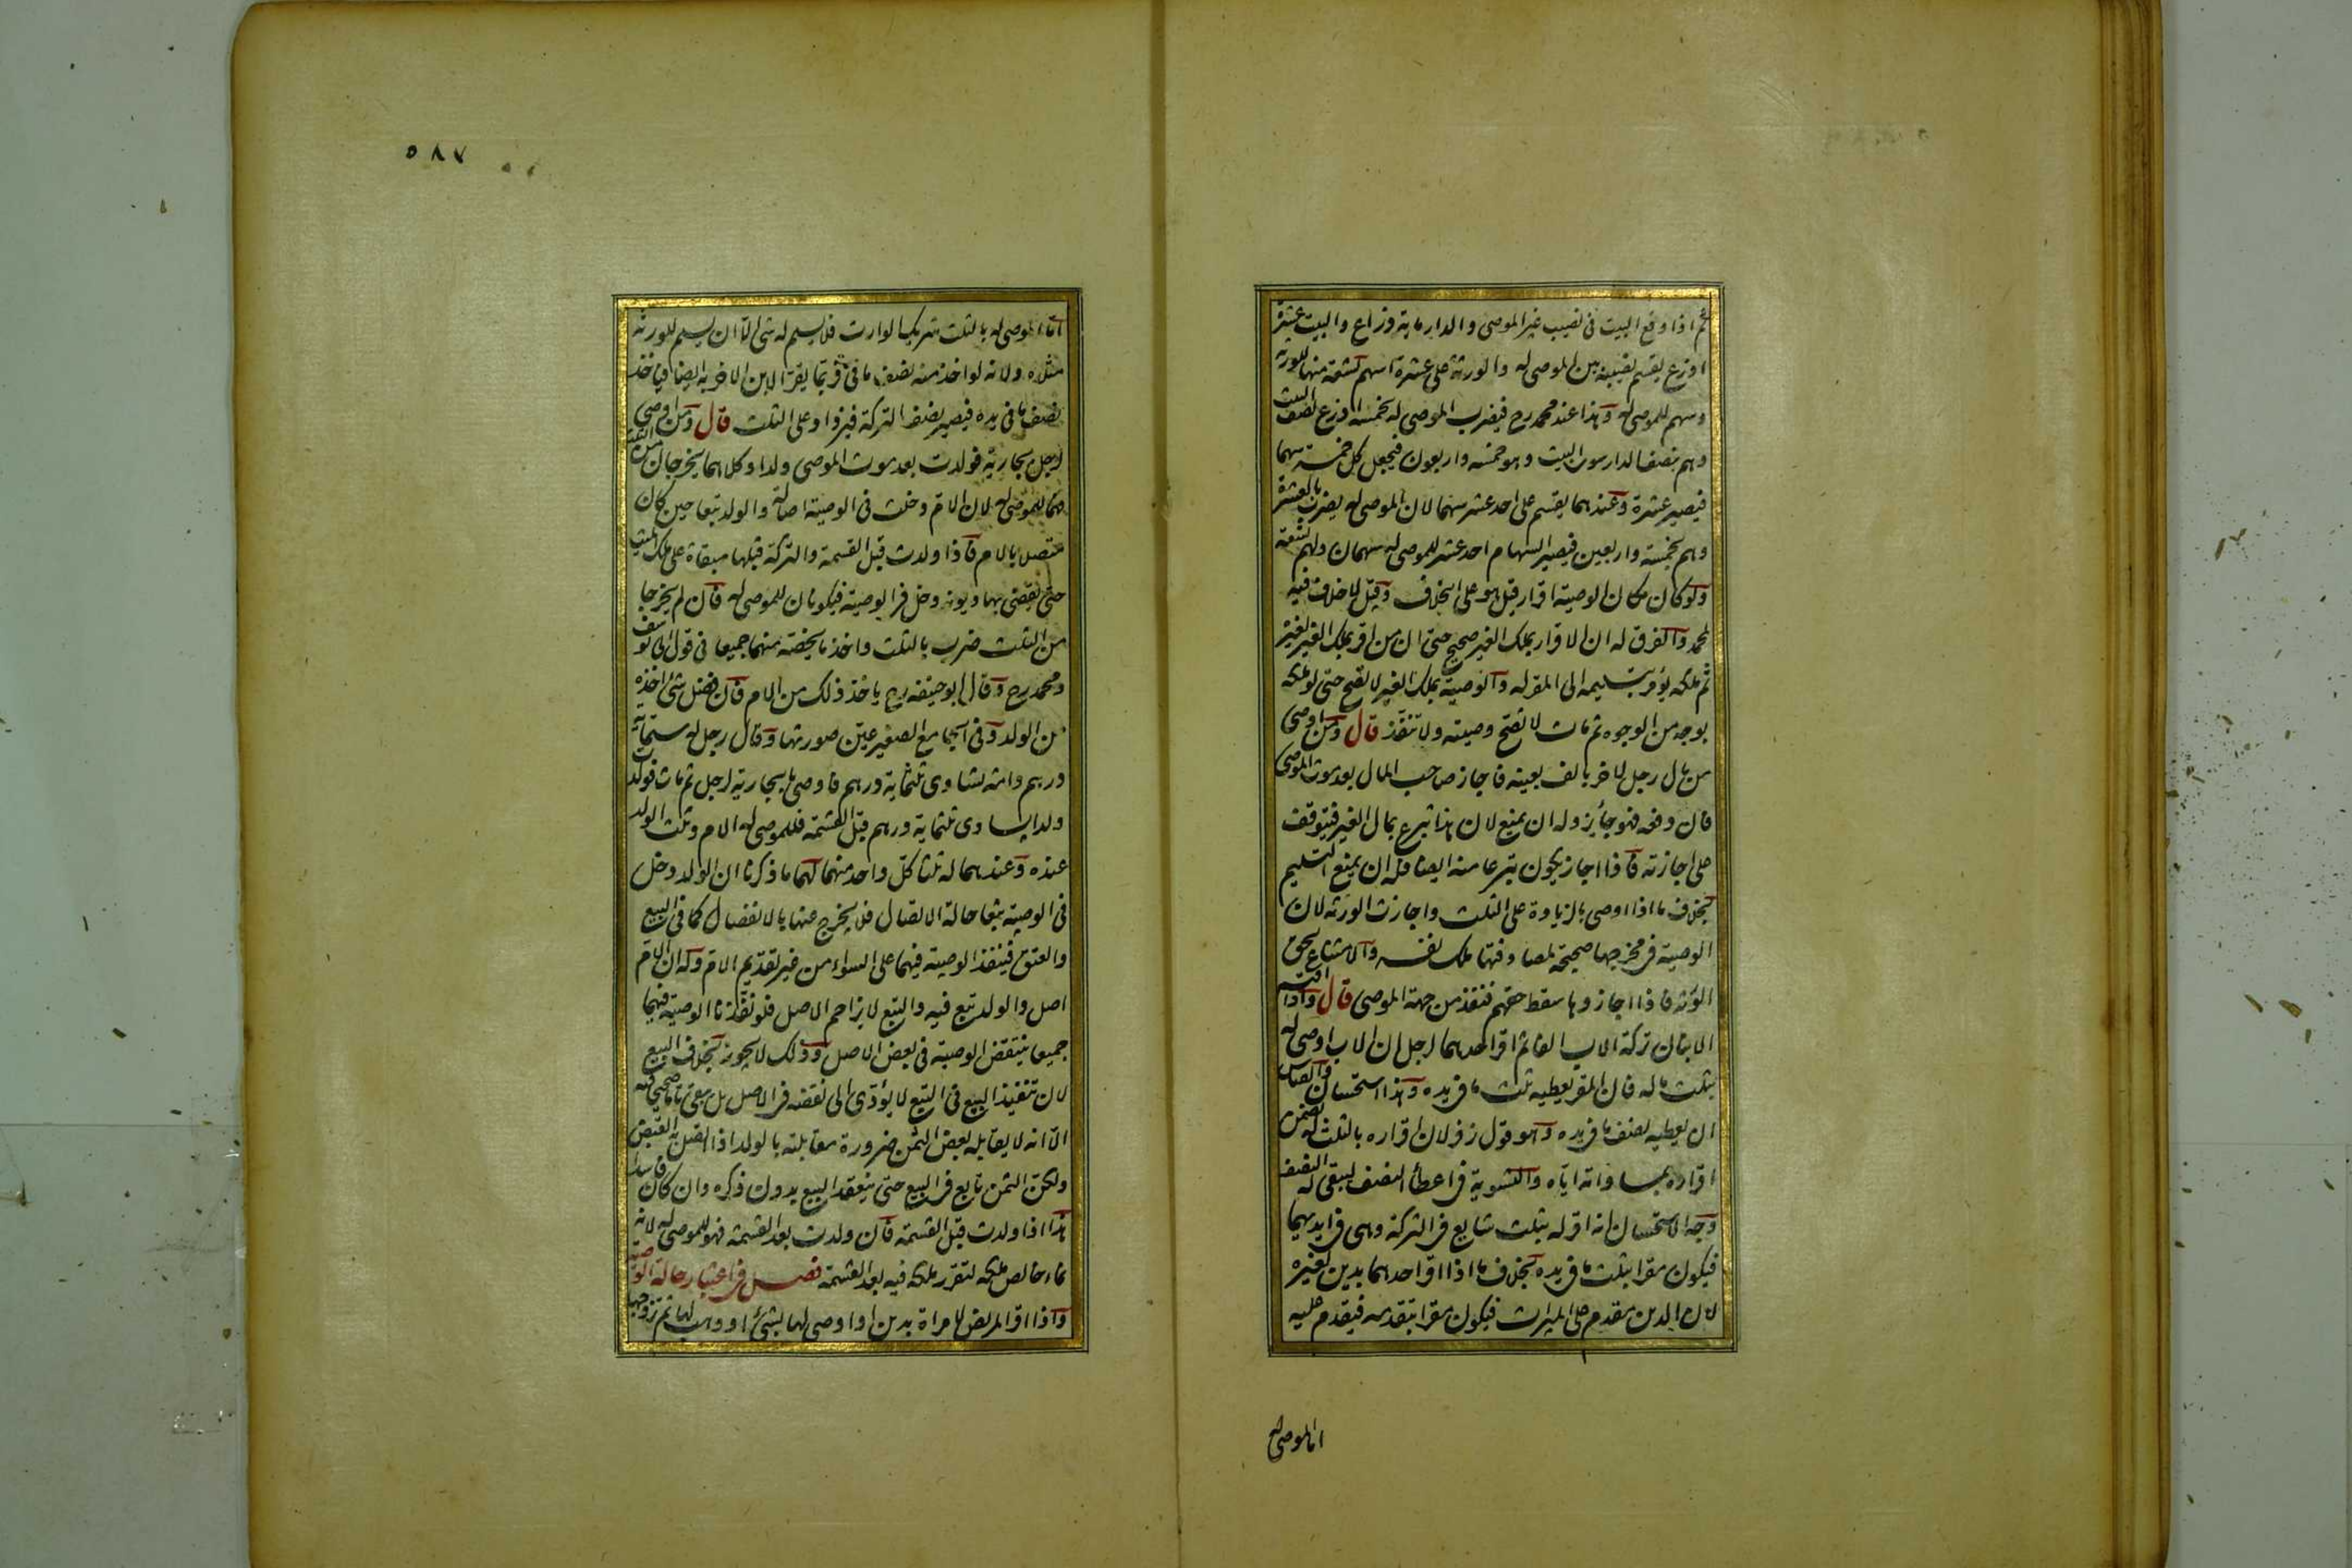 ثم اذا وقع البيت فى نصيب غير الموصى والدار ماية ذراع والبيت عشرة
اذرع يقسم نصيبه بين الموصى له والورثة على عشرة اسهم تسعة منها للورثة
وسهم للموصى له وهذا عند محمد رح فيضرب الموصى له بخمسة اذرع نصف البيت
وهم بنصف الدار سوى البيت وهو خمسة واربعون فيجعل كل خمسة سهما
فيصير عشرة وعندهما يقسم على احد عشر سهما لان الموصى له يضرب بالعشرة
وهم بخمسة واربعين فيصير السهام احد عشر للموصى له سهمان ولهم تسعة
ولو كان مكان الوصية اقرار قيل هو على الخلاف وقيل لا خلاف فيه
لمحمد والفرق له ان الاقرار بملك الغير صحيح حتى ان من اقر بملك الغير لغيره
ثم ملكه يؤمر بتسليمه الى المقر له والوصية بملك الغير لا تصح حتى لو ملكه
بوجه من الوجوه ثم مات لا تصح وصيته ولا تنفذ قال ومن اوصى
من مال رجل لاخر بالف بعينه فاجاز صاحب المال بعد موت الموصى
فان دفعه فهو جائز وله ان يمنع لان هذا تبرع بمال الغير فيتوقف
على اجازته فاذا اجاز يكون تبرعا منه ايضا فله ان يمنع التسليم
بخلاف ما اذا اوصى بالزيادة على الثلث واجازت الورثة لان
الوصية فى مخرجها صحيحة لمصادفتها ملك نفسه والامتناع لحق
الورثة فاذا اجازوها سقط حقهم فنفذ من جهة الموصى قال واذا اقتسم
الابنان تركة الاب الفا ثم اقر احدهما لرجل ان الاب اوصى له
بثلث ماله فان المقر يعطيه ثلث ما فى يده وهذا استحسان والقياس
ان يعطيه نصف ما فى يده وهو قول زفر لان اقراره بالثلث له تضمن
اقراره بمساواته اياه والتسوية فى اعطاء النصف ليبقى له النصف
وجه الاستحسان انه اقر له بثلث شايع فى التركة وهى فى ايديهما
فيكون مقرا بثلث ما فى يده بخلاف ما اذا اقر احدهما بدين لغيره
لان الدين مقدم على الميراث فيكون مقرا بتقدمه فيقدم عليه
اما الموصى له
٥٨٧
اما الموصى له بالثلث شريك الوارث فلا يسلم له شى الا ان يسلم للورثة
مثلاه ولانه لو اخذ منه نصف ما فى يده فربما يقر الابن الاخر به ايضا فياخذ
نصف ما فى يده فيصير نصف التركة فيزداد على الثلث قال ومن اوصى
لرجل بجارية فولدت بعد موت الموصى ولدا وكلاهما يخرجان من الثلث
فهما للموصى له لان الام دخلت فى الوصية اصالة والولد تبعا حين كان
متصلا بالام فاذا ولدت قبل القسمة والتركة قبلها مبقاة على ملك الميت
حتى يقضى بها ديونه دخل فى الوصية فيكونان للموصى له فان لم يخرجا
من الثلث ضرب بالثلث واخذ ما يخصه منهما جميعا فى قول ابى يوسف
ومحمد رح وقال ابو حنيفه رح ياخذ ذلك من الام فان فضل شئ اخذه
من الولد وفى الجامع الصغير عين صورتها وقال رجل له ستماية
درهم وامة تساوى ثلثماية درهم فاوصى بجارية لرجل ثم مات فولدت
ولدا يساوى ثلثماية درهم قبل القسمة فللموصى له الام وثلث الولد
عنده وعندهما له ثلثا كل واحد منهما لهما ما ذكرنا ان الولد دخل
فى الوصية تبعا حالة الاتصال فلا يخرج عنها بالانفصال كما فى البيع
والعتق فينفذ الوصية فيهما على السواء من غير تقديم الام وله ان الام
اصل والولد تبع فيه والتبع لا يزاحم الاصل فلو نفذنا الوصية فيهما
جميعا ينتقض الوصية فى بعض الاصل وذلك لا يجوز بخلاف البيع
لان تنفيذ البيع فى التبع لا يؤدى الى نقضه فى الاصل بل يبقى تاما صحيحا فيه
الا انه لا يقابله بعض الثمن ضرورة مقابلته بالولد اذا اتصل به القبض
ولكن الثمن تابع فى البيع حتى ينعقد البيع بدون ذكره وان كان فاسدا
هذا اذا ولدت قبل القسمة فان ولدت بعد القسمة فهو للموصى له لانه
نماء خالص ملكه لتقرر ملكه فيه بعد القسمة فصل فى اعتبار حالة الوصية
واذا اقر المريض لامراة بدين او اوصى لها بشئ او وهب لها ثم تزوجها